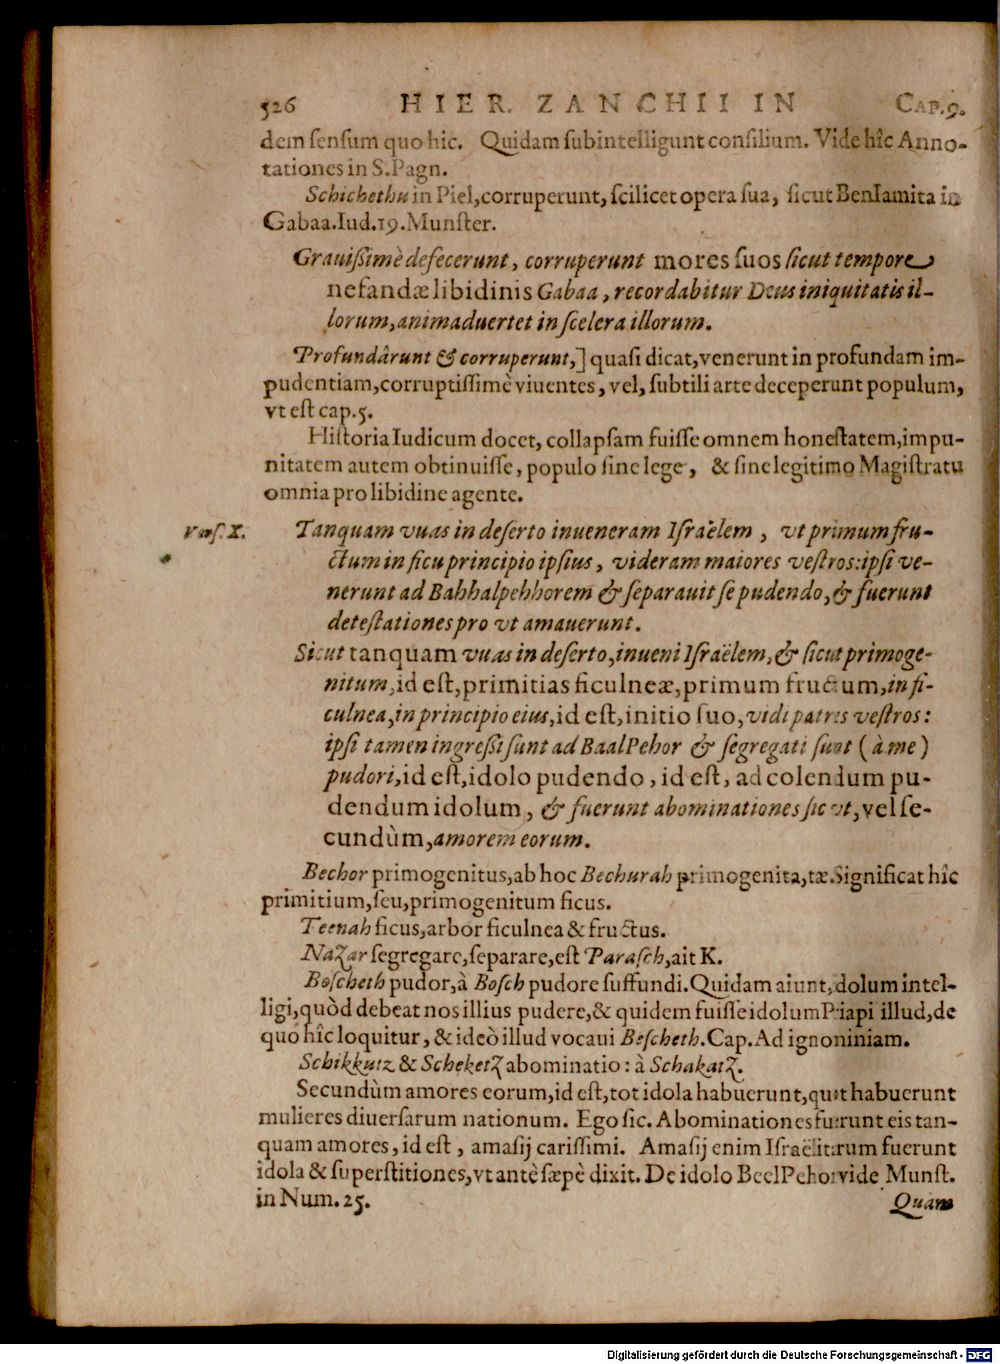 526 HIER. ZANCHII IN CAP.9.
dem sensum quo hic. Quidam subintelligunt consilium. Vide hîc Anno-
tationes in S.Pagn.
Schichethu in Piel,corruperunt, scilicet opera sua, sicut BenIamita in
Gabaa.Iud.19.Munster.
Grauißimè defecerunt, corruperunt mores suos sicut tempore
nefandæ libidinis Gabaa, recordabitur Deus iniquitatis il-
lorum,animaduertet in scelera illorum.
Profundârunt & corruperunt,] quasi dicat,venerunt in profundam im-
pudentiam,corruptissimè viuentes, vel, subtili arte deceperunt populum,
vt est cap.5.
Historia Iudicum docet, collapsam fuisse omnem honestatem,impu-
nitatem autem obtinuisse, populo sine lege, & sine legitimo Magistratu
omnia pro libidine agente.
Vers.X. Tanquam vuas in deserto inueneram Israëlem, vt primum fru-
ctum in ficu principio ipsius, videram maiores vestros:ipsi ve-
nerunt ad Bahhalpehhorem & separauit se pudendo,& fuerunt
detestationes pro vt amauerunt.
Sicut tanquam vuas in deserto,inueni Israëlem,& sicut primoge-
nitum,id est,primitias ficulneæ,primum fructum,in fi-
culnea,in principio eius,id est,initio suo,vidi patres vestros:
ipsi tamen ingreßi sunt ad BaalPehor & segregati sunt (à me)
pudori,id est,idolo pudendo, id est, ad colendum pu-
dendum idolum, & fuerunt abominationes sicut,vel se-
cundùm,amorem eorum.
Bechor primogenitus,ab hoc Bechurah primogenita,tæ.Significat hîc
primitium,seu,primogenitum ficus.
Teenah ficus,arbor ficulnea & fructus.
Nazar segregare,separare,est Parasch,ait K.
Boscheth pudor,à Bosch pudore suffundi.Quidam aiunt,dolum intel-
ligi,quòd debeat nos illius pudere,& quidem fuisse idolum Priapi illud,de
quo hîc loquitur, & ideò illud vocaui Boscheth.Cap.Ad ignoniniam.
Schikkutz & Scheketz abominatio: à Schakatz.
Secundùm amores eorum,id est,tot idola habuerunt,quot habuerunt
mulieres diuersarum nationum. Ego sic. Abominationes fuerunt eis tan-
quam amores, id est, amasij carissimi. Amasij enim Israëlitarum fuerunt
idola & superstitiones,vt antè sæpè dixit. De idolo BeelPehor vide Munst.
in Num. 25.
Quam
Digitalisierung gefördert durch die Deutsche Forschungsgemeinschaft - DFG